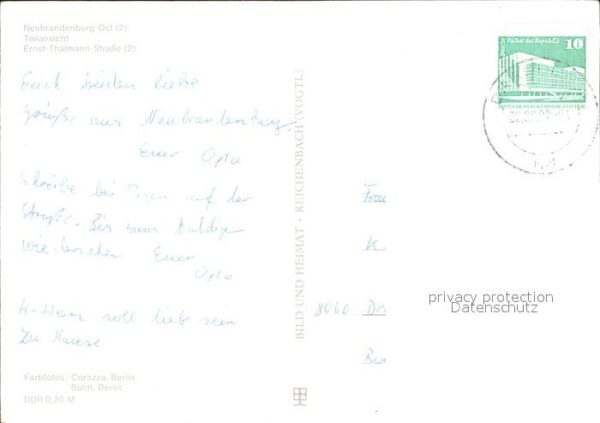 Neubrandenburg-Ost (2)
Teilansicht
Ernst-Thälmann-Straße (2)
Euch beiden liebe
Grüße aus Neubrandenburg.
Euer Opa
Schreibe bei Regen auf der
Straße. Bis zum baldigen
Wiedersehen Euer
Opa
soll lieb sein
Zu Hause
Farbfotos: Corazza, Berlin
Boldt, Berlin
DDR 0,20 M
BILD UND HEIMAT · REICHENBACH (VOGTL)
Palast der Republik
Berlin
10
Frau
K
8060 Dr
privacy protection
Datenschutz